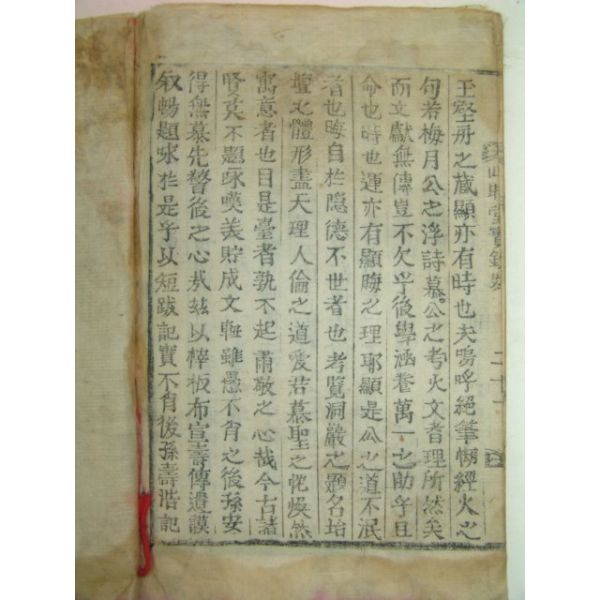 玉壑舟之蔵顯亦有時也夫嗚呼絕筆憫經火之
句若梅月公之浮詩慕公之考火文耆理所然矣
而文獻無傳豈不欠乎後學涵養萬一之助乎且
命也時也運亦有顯晦之理耶顯是公之道不泯
者也晦自於隐德不世者也考覽洞嚴之題名坮
壇之體形盡天理人倫之道愛君慕聖之忱煥然
寓意者也目是臺者孰不起肅敬之心哉今古諸
賢莫不題咏嘆美貯成文軸雖愚不肖之後孫安
得無慕先警後之心哉玆以梓板布宣壽傳遺謨
叙暢題咏於是乎以短跋記實不肖後孫壽浩記
堂實錄
二十一